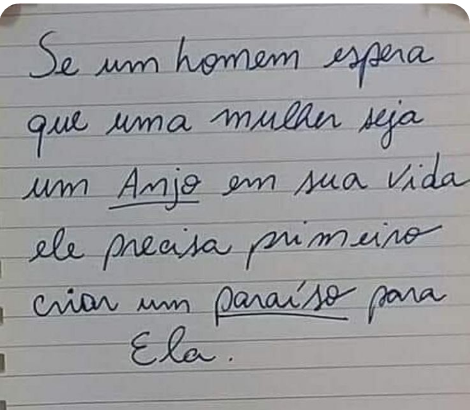 Se um homem espera
que uma mulher seja
um Anjo em sua vida
ele precisa primeiro
criar um paraíso para
Ela.